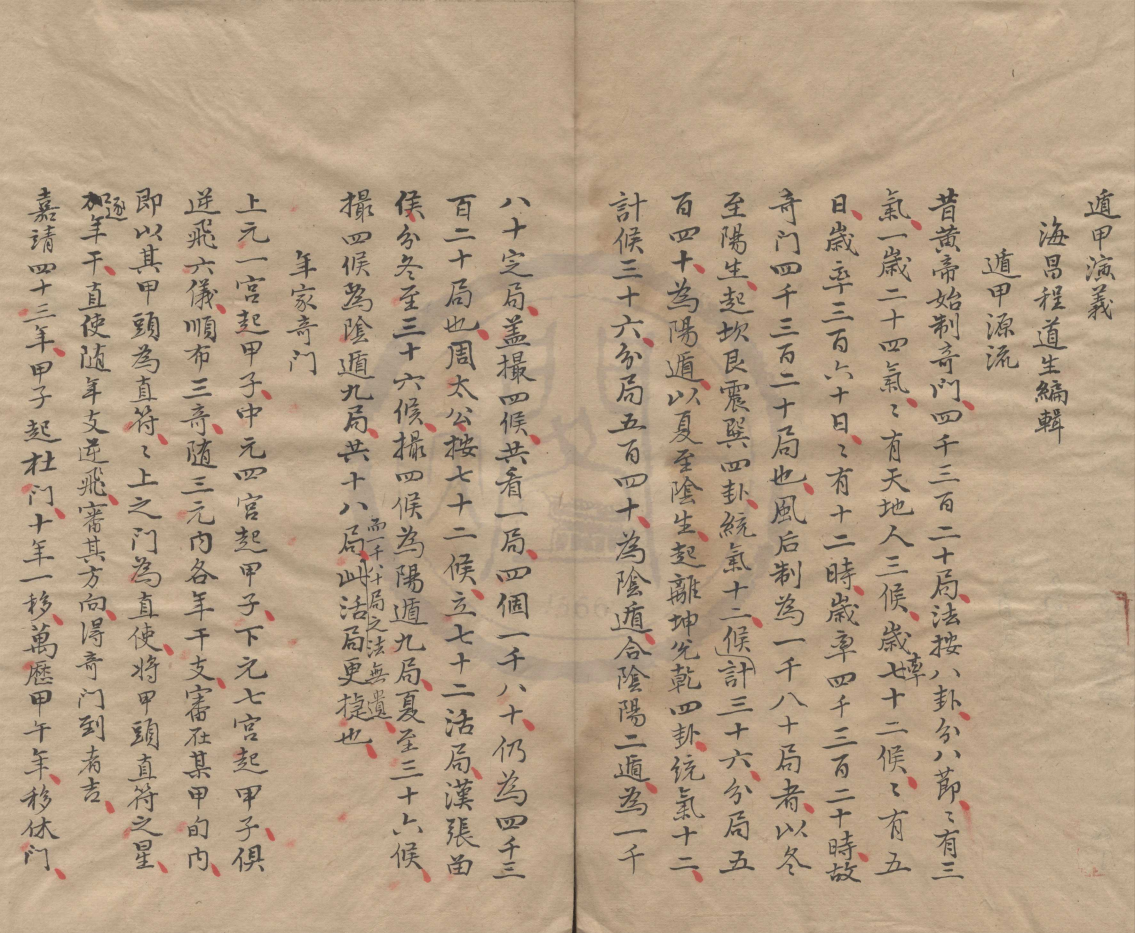 遁甲演義
海昌程道生編輯
遁甲源流
昔黃帝始制奇門四千三百二十局法按八卦分八節〻有三
氣一歲二十四氣〻有天地人三候歲率七十二候〻有五
日歲率三百六十日〻有十二時歲率四千三百二十時故
奇门四千三百二十局也風后制為一千八十局者以冬
至陽生起坎艮震巽四卦統氣十二候計三十六分局五
百四十為陽遁以夏至陰生起離坤兌乾四卦統氣十二
計候三十六分局五百四十為陰遁合陰陽二遁為一千
八十定局盖撮四候共看一局四個一千八十仍為四千三
百二十局也周太公按七十二候立七十二活局漢張畄
侯分冬至三十六候撮四候為陽遁九局夏至三十六候
撮四候為陰遁九局共十八局而一千八十局之法無遺此活局更捷也
年家奇门
上元一宮起甲子中元四宮起甲子下元七宮起甲子俱
逆飛六儀順布三奇随三元内各年干支審在某甲旬内
即以其甲頭為直符〻上之门為直使将甲頭直符之星
加逐年干直使随年支逆飛審其方向得奇门到者吉
嘉靖四十三年甲子起杜门十年一移萬歷甲午年移休门